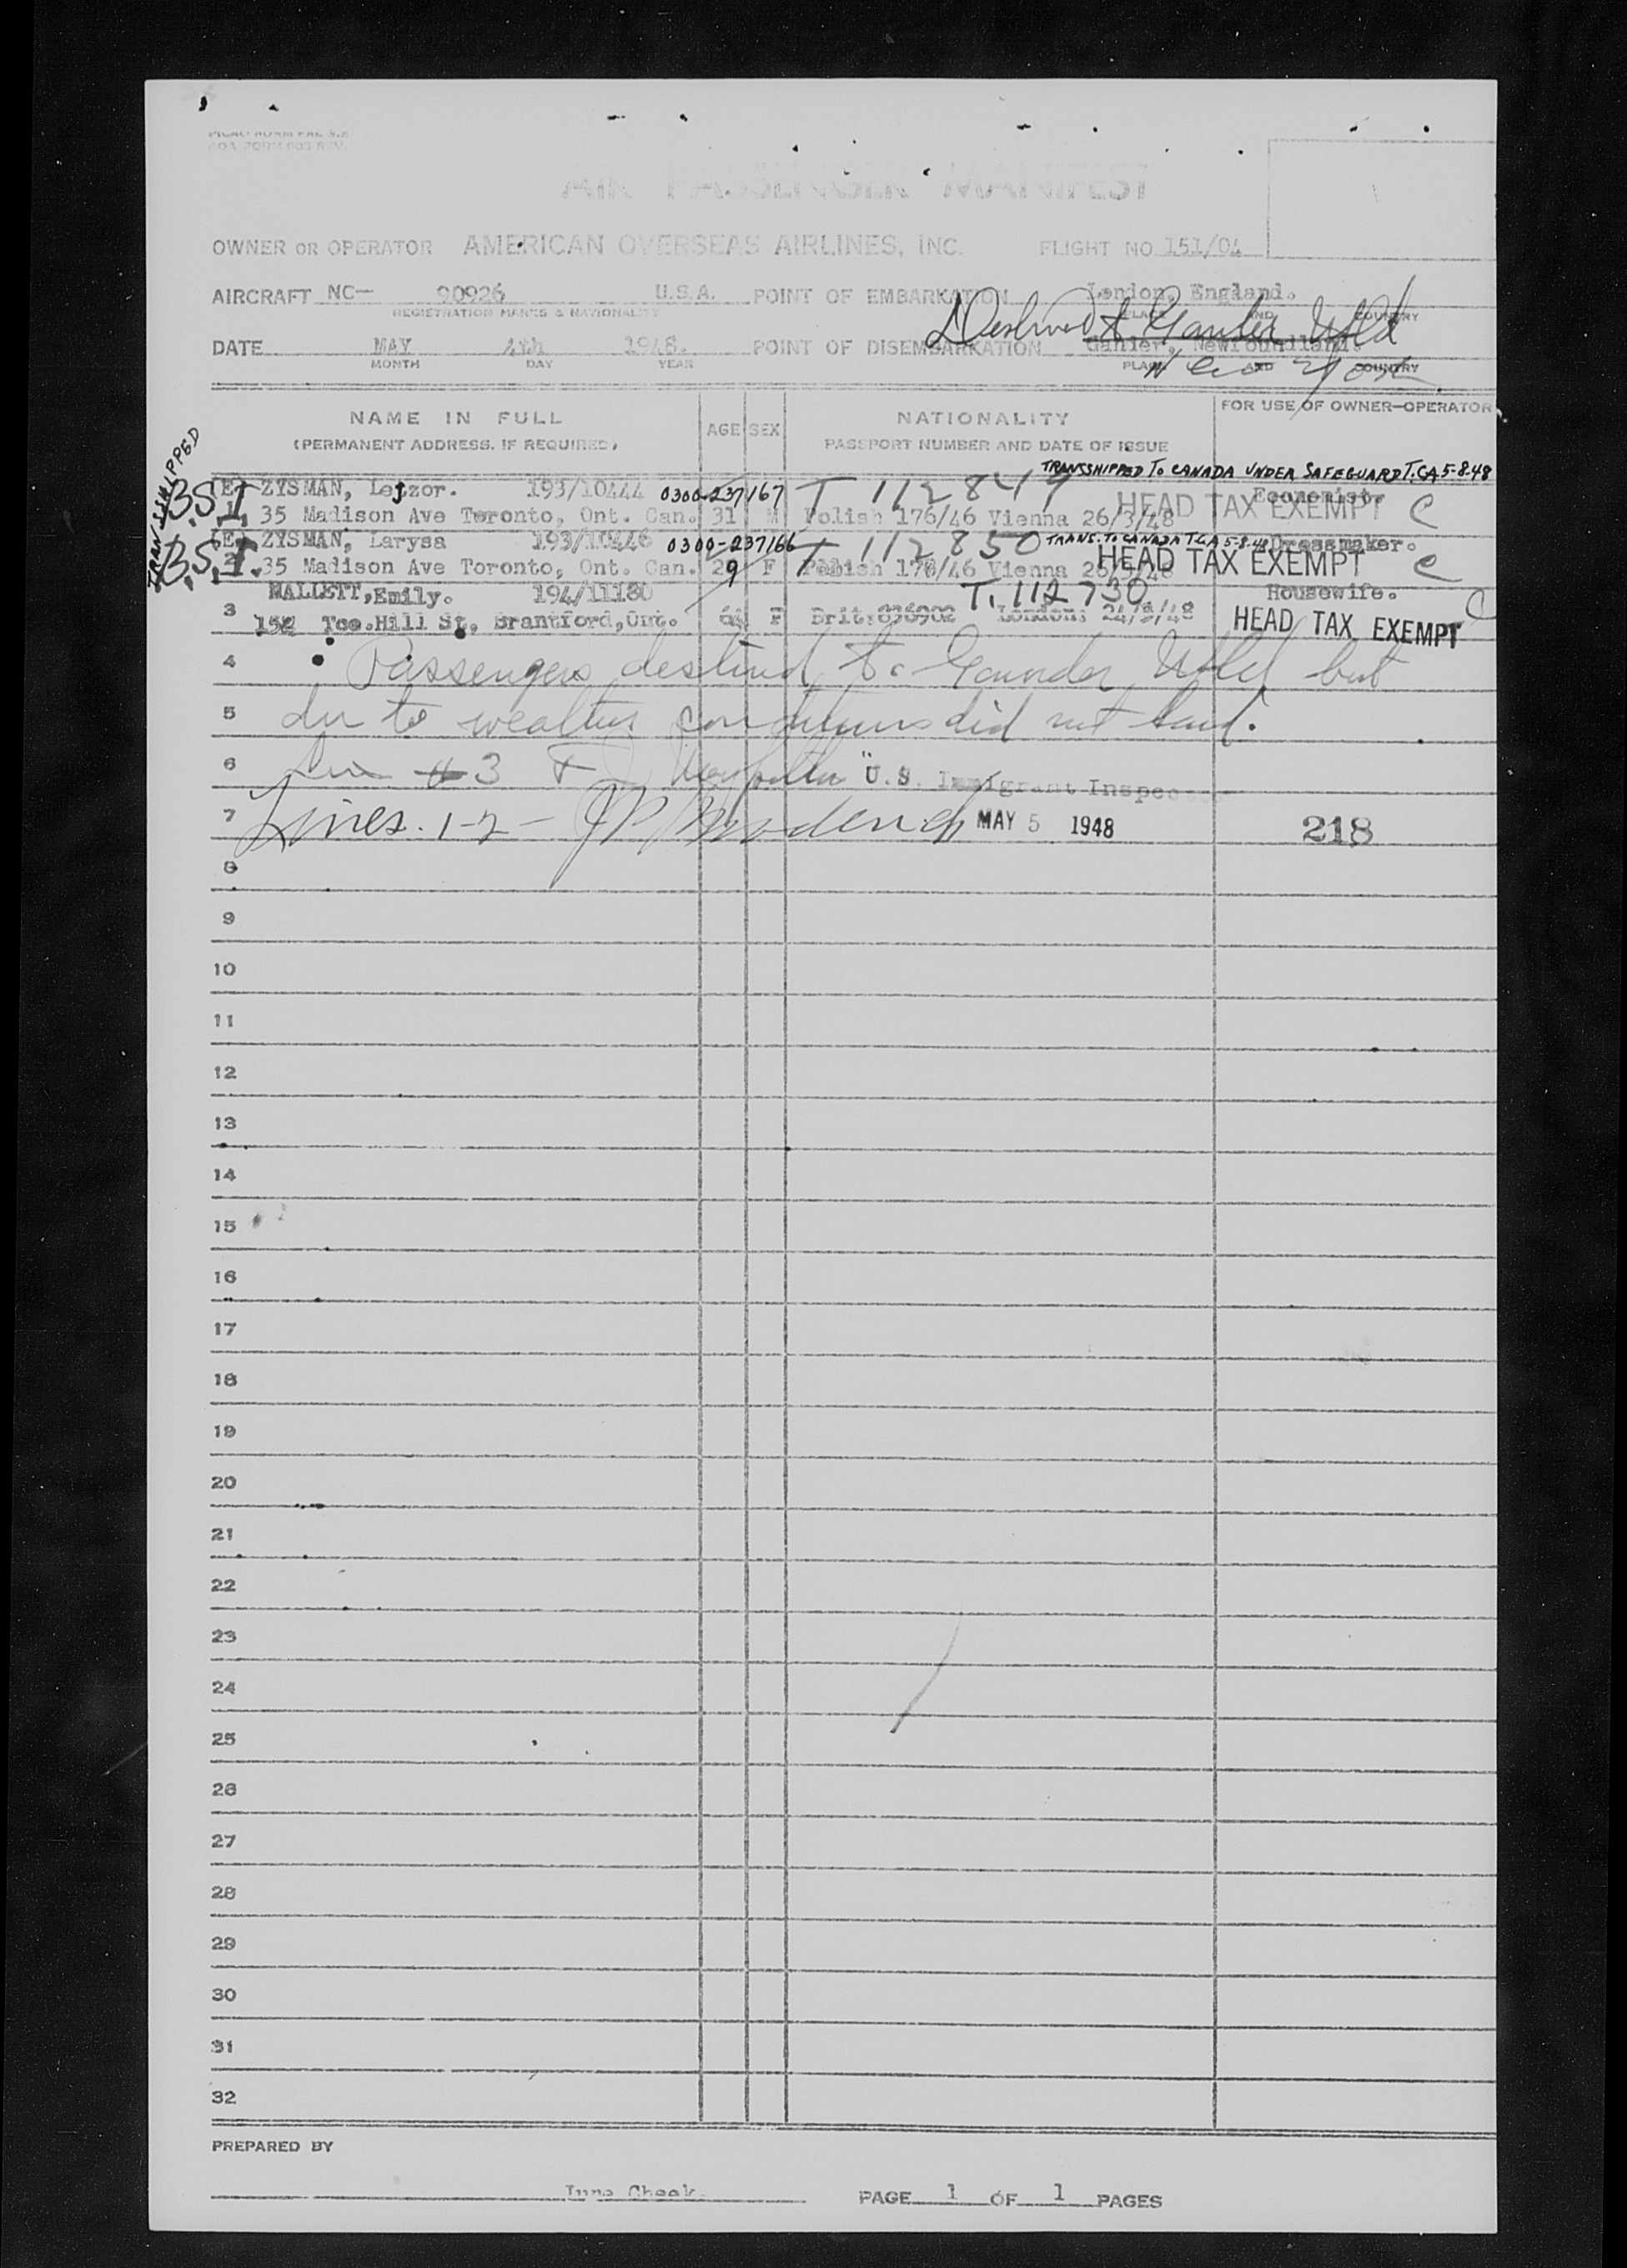 AIR PASSENGER MANIFEST
OWNER OR OPERATOR AMERICAN OVERSEAS AIRLINES, INC. FLIGHT NO. 151/04
AIRCRAFT NC— 90926 U.S.A. POINT OF EMBARKATION London, England.
REGISTRATION MARKS & NATIONALITY PLACE AND COUNTRY
Destined to Gander Nfld
DATE MAY 4th 1948. POINT OF DISEMBARKATION Gander, Newfoundland.
MONTH DAY YEAR PLACE AND COUNTRY
New York
NAME IN FULL AGE SEX NATIONALITY FOR USE OF OWNER-OPERATOR
(PERMANENT ADDRESS, IF REQUIRED) PASSPORT NUMBER AND DATE OF ISSUE
TRANSSHIPPED
TRANSSHIPPED TO CANADA UNDER SAFEGUARD T.C.A 5-8-48
B.S.I. ZYSMAN, Lejzor. 193/10444 0300-237167 T 112849 Economist.
35 Madison Ave Toronto, Ont. Can. 31 M Polish 176/46 Vienna 26/3/48 HEAD TAX EXEMPT C
TRANS. TO CANADA T.C.A 5-8-48
B.S.I. ZYSMAN, Larysa 193/10446 0300-237166 T 112850 Dressmaker.
35 Madison Ave Toronto, Ont. Can. 29 F Polish 176/46 Vienna 26/3/48 HEAD TAX EXEMPT C
MALLETT, Emily. 194/11180 T. 112730 Housewife. C
3 152 Tce. Hill St, Brantford, Ont. 64 F Brit: London: HEAD TAX EXEMPT
4 Passengers destined to Gander Nfld but
5 due to weather conditions did not land.
6 Line #3 U.S. Immigrant Inspector
7 Lines. 1-2 - MAY 5 1948 218
8
9
10
11
12
13
14
15
16
17
18
19
20
21
22
23
24
25
26
27
28
29
30
31
32
PREPARED BY
June Cheek. PAGE 1 OF 1 PAGES